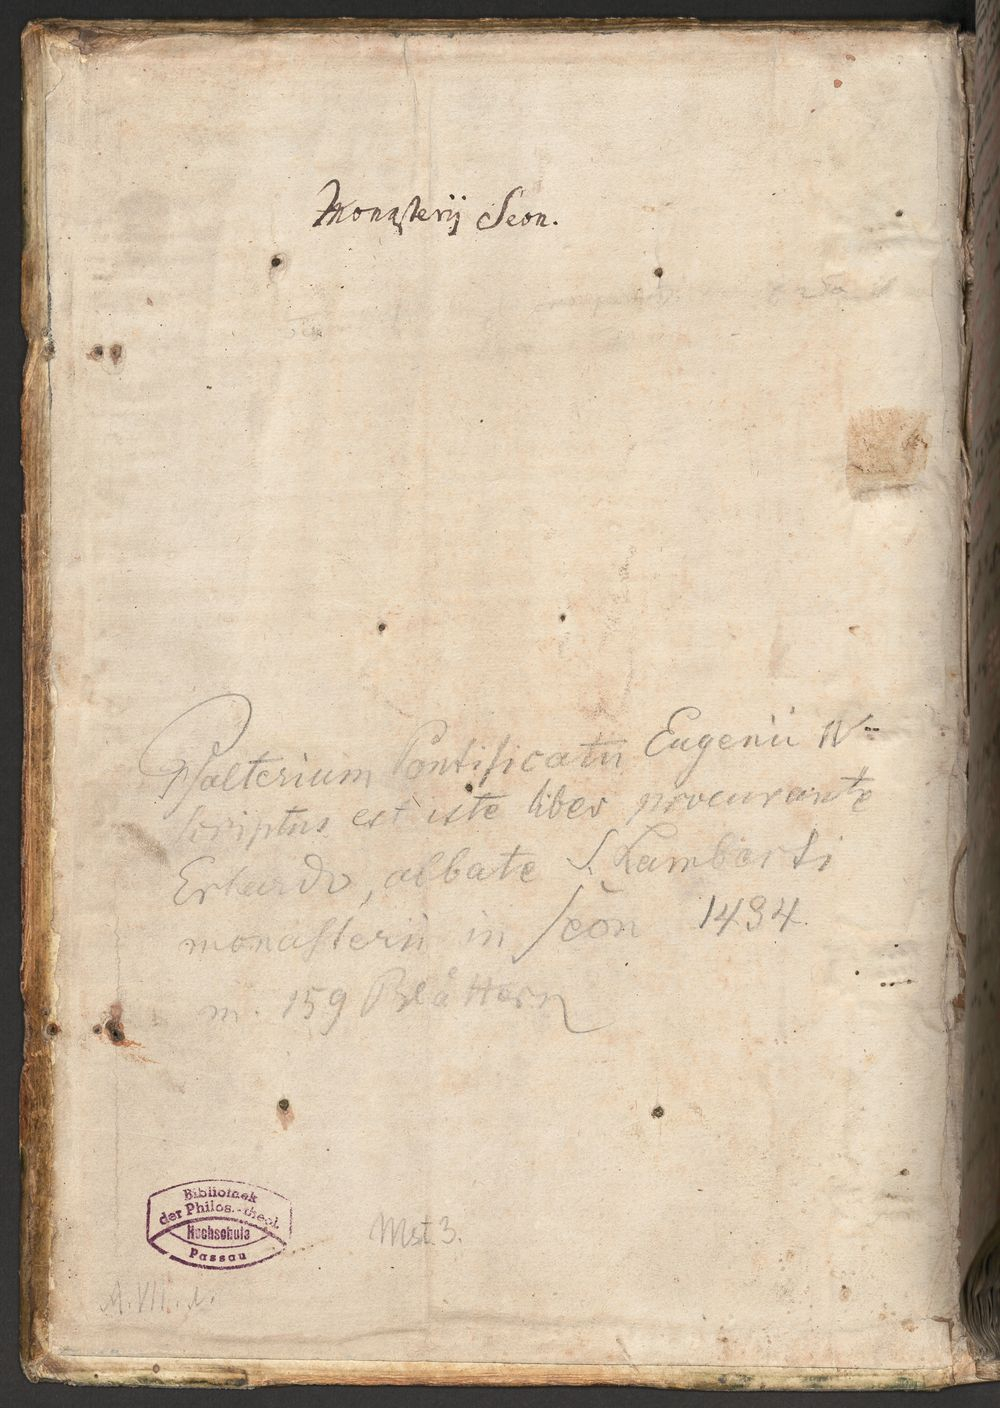 Monasterij Seon.
Psalterium Pontificatu Eugenii IV
scriptus est iste liber procurante
Erhardo, abbate S. Lamberti
monasterii in Seon 1434.
m. 159 Blättern
Bibliothek
der Philos.-theol.
Hochschule
Passau
Mst 3.
A. VII. 1.